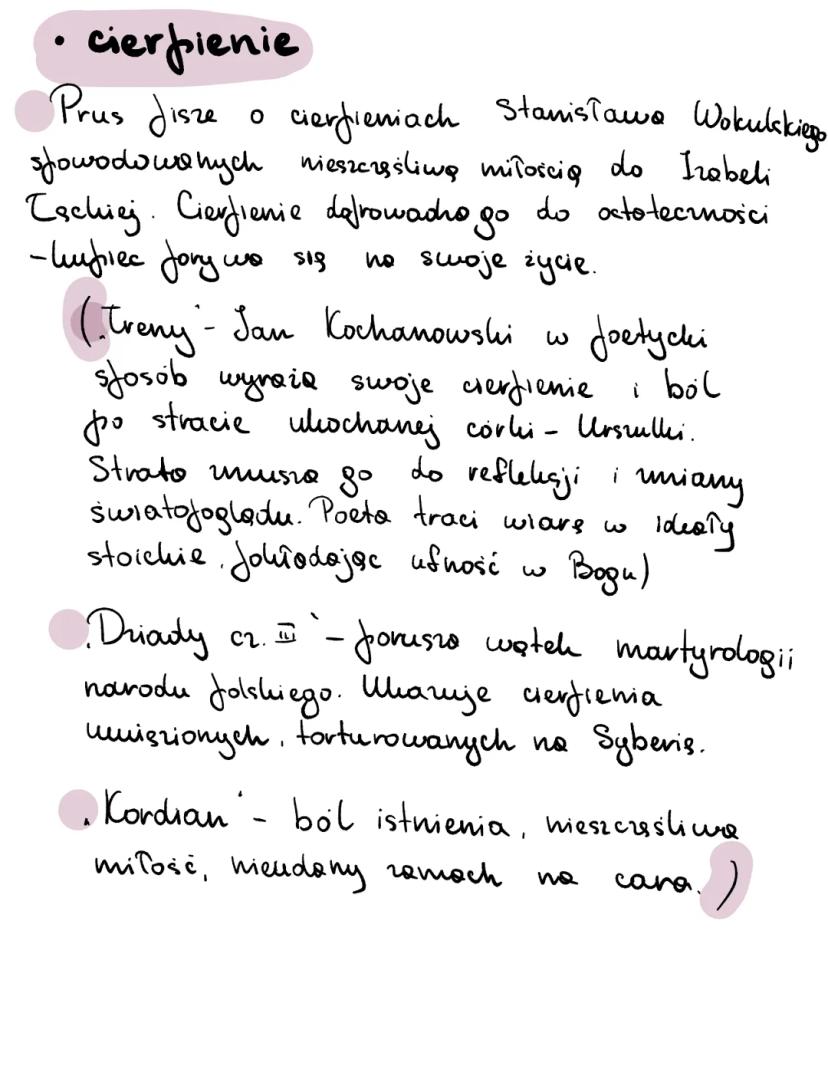 • cierpienie
Prus pisze o cierpieniach Stanisława Wokulskiego
spowodowanych nieszczęśliwą miłością do Izabeli
Łęckiej. Cierpienie doprowadza go do ostateczności
- kupiec porywa się na swoje życie.
("Treny" - Jan Kochanowski w poetycki
sposób wyraża swoje cierpienie i ból
po stracie ukochanej córki - Urszulki.
Strata zmusza go do refleksji i zmiany
światopoglądu. Poeta traci wiarę w ideały
stoickie, pokładając ufność w Bogu)
"Dziady cz. III" - porusza wątek martyrologii
narodu polskiego. Ukazuje cierpienia
uwięzionych, torturowanych na Syberię.
"Kordian" - ból istnienia, nieszczęśliwa
miłość, nieudany zamach na cara.)